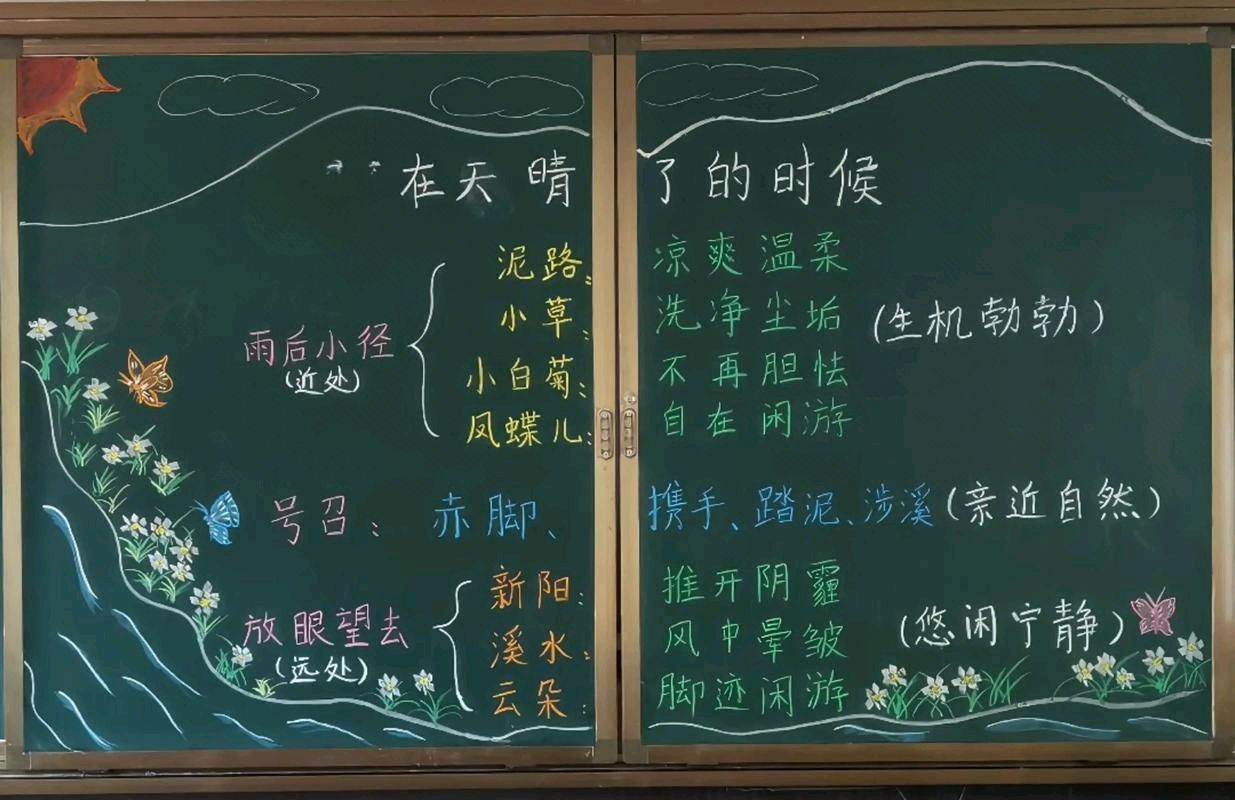 在天晴了的时候
泥路：凉爽温柔
小草：洗净尘垢
雨后小径
（近处）
（生机勃勃）
小白菊：不再胆怯
凤蝶儿：自在闲游
号召：赤脚、携手、踏泥、涉溪（亲近自然）
新阳：推开阴霾
放眼望去
（远处）
溪水：风中晕皱
（悠闲宁静）
云朵：脚迹闲游